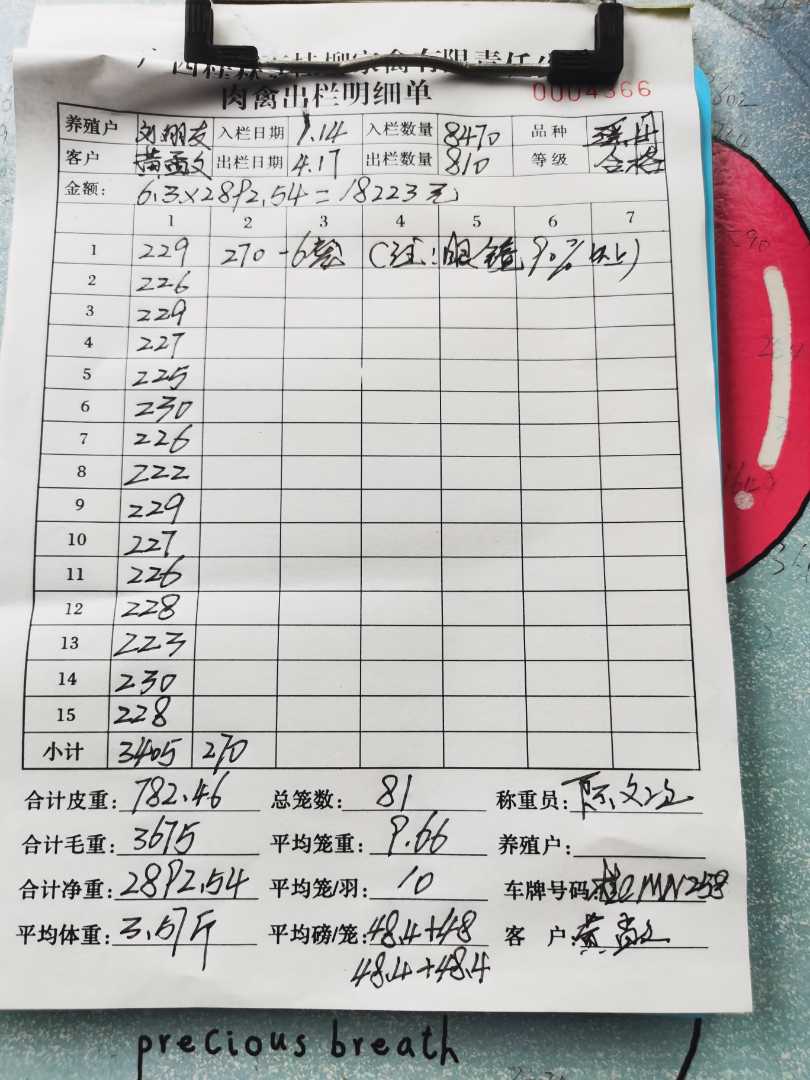 肉禽出栏明细单 0004366
养殖户 刘朋友 入栏日期 1.14 入栏数量 8470 品种
客户 黄雨文 出栏日期 4.17 出栏数量 810 等级 合格
金额: 6.3×2892.54=18223元
1 2 3 4 5 6 7
1 229 270-6笼 (注:眼镜90%以上)
2 226
3 229
4 227
5 225
6 230
7 226
8 222
9 229
10 227
11 226
12 228
13 223
14 230
15 228
小计 3405 270
合计皮重: 782.46 总笼数: 81 称重员:
合计毛重: 3675 平均笼重: 9.66 养殖户:
合计净重: 2892.54 平均笼/羽: 10 车牌号码: 桂CMN258
平均体重: 3.57斤 平均磅/笼: 48.4+48 客 户:
48.4+48.4
precious breath